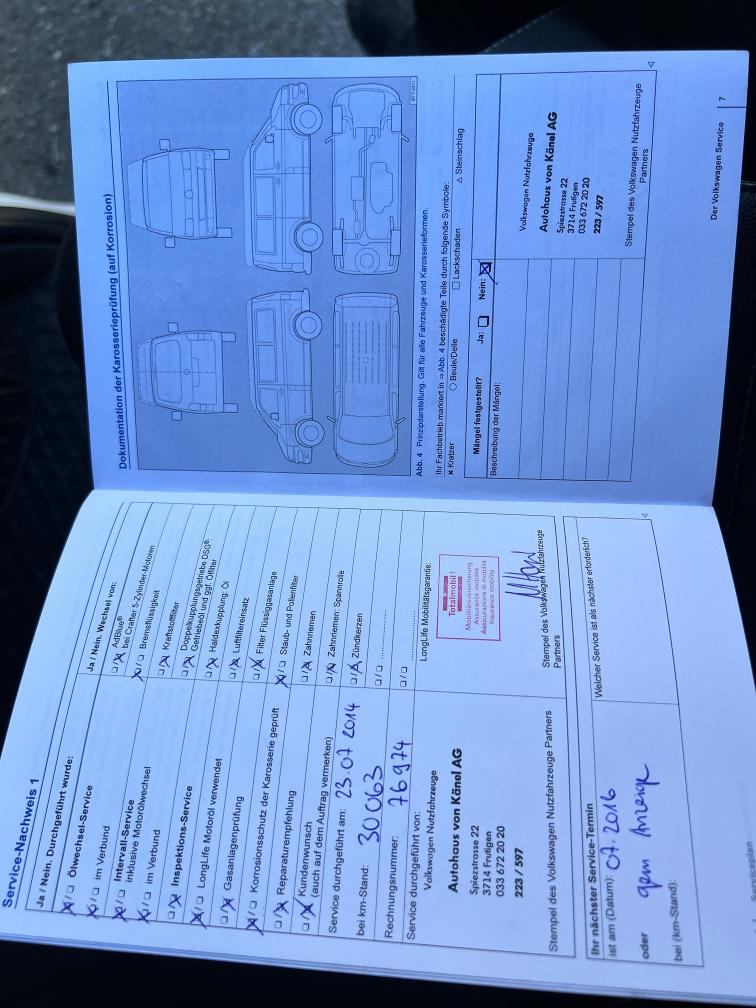 Service-Nachweis 1
Ja / Nein. Durchgeführt wurde:
Ölwechsel-Service
im Verbund
Intervall-Service
inklusive Motorölwechsel
im Verbund
Inspektions-Service
LongLife Motoröl verwendet
Gasanlagenprüfung
Korrosionsschutz der Karosserie geprüft
Reparaturempfehlung
Kundenwunsch
(auch auf dem Auftrag vermerken)
Service durchgeführt am: 23.07 2014
bei km-Stand: 30063
Rechnungsnummer: 76974
Service durchgeführt von:
Volkswagen Nutzfahrzeuge
Autohaus von Känel AG
Spiezstrasse 22
3714 Frutigen
033 672 20 20
223 / 597
Stempel des Volkswagen Nutzfahrzeuge Partners
Ja / Nein. Wechsel von:
AdBlue®
bei Crafter 5-Zylinder-Motoren
Bremsflüssigkeit
Kraftstofffilter
Doppelkupplungsgetriebe DSG®:
Getriebeöl und ggf. Ölfilter
Haldexkupplung: Öl
Luftfiltereinsatz
Filter Flüssiggasanlage
Staub- und Pollenfilter
Zahnriemen
Zahnriemen: Spannrolle
Zündkerzen
LongLife Mobilitätsgarantie:
Totalmobil!
Mobilitätsversicherung
Assurance mobilité
Assicurazione di mobilità
Insurance mobility
Stempel des Volkswagen Nutzfahrzeuge
Partners
Ihr nächster Service-Termin
ist am (Datum): 07.2016
oder gem Anzeige
bei (km-Stand):
Welcher Service ist als nächster erforderlich?
Serviceplan
Dokumentation der Karosserieprüfung (auf Korrosion)
Abb. 4 Prinzipdarstellung. Gilt für alle Fahrzeuge und Karosserieformen.
Ihr Fachbetrieb markiert in ⇒ Abb. 4 beschädigte Teile durch folgende Symbole:
✖ Kratzer ○ Beule/Delle □ Lackschaden △ Steinschlag
Mängel festgestellt? Ja: Nein:
Beschreibung der Mängel:
Volkswagen Nutzfahrzeuge
Autohaus von Känel AG
Spiezstrasse 22
3714 Frutigen
033 672 20 20
223 / 597
Stempel des Volkswagen Nutzfahrzeuge
Partners
Der Volkswagen Service 7